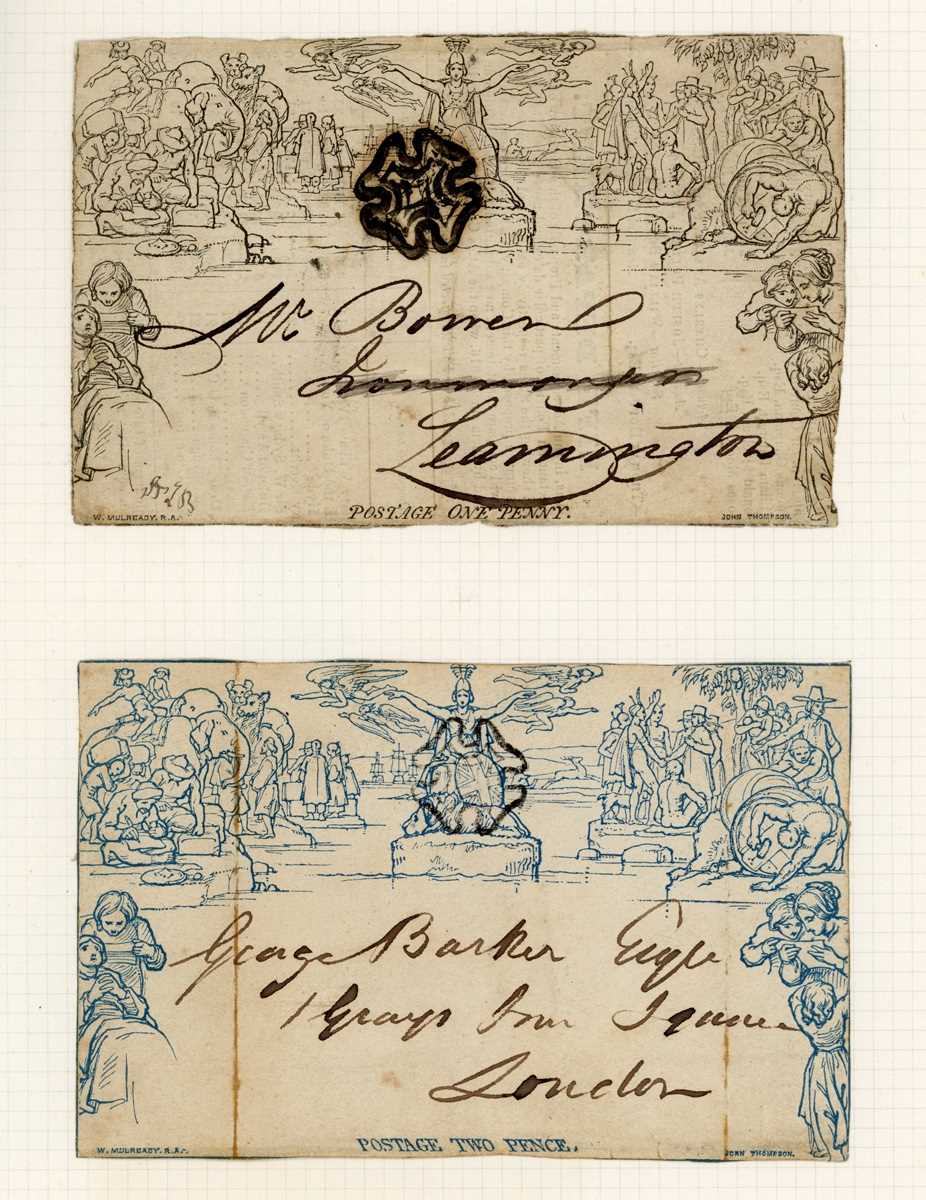 Mr Bowen
Ironmonger
Leamington
POSTAGE ONE PENNY.
W. MULREADY, R.A.
JOHN THOMPSON.
George Barker Esqre
1 Grays Inn Square
London
POSTAGE TWO PENCE.
W. MULREADY, R.A.
JOHN THOMPSON.